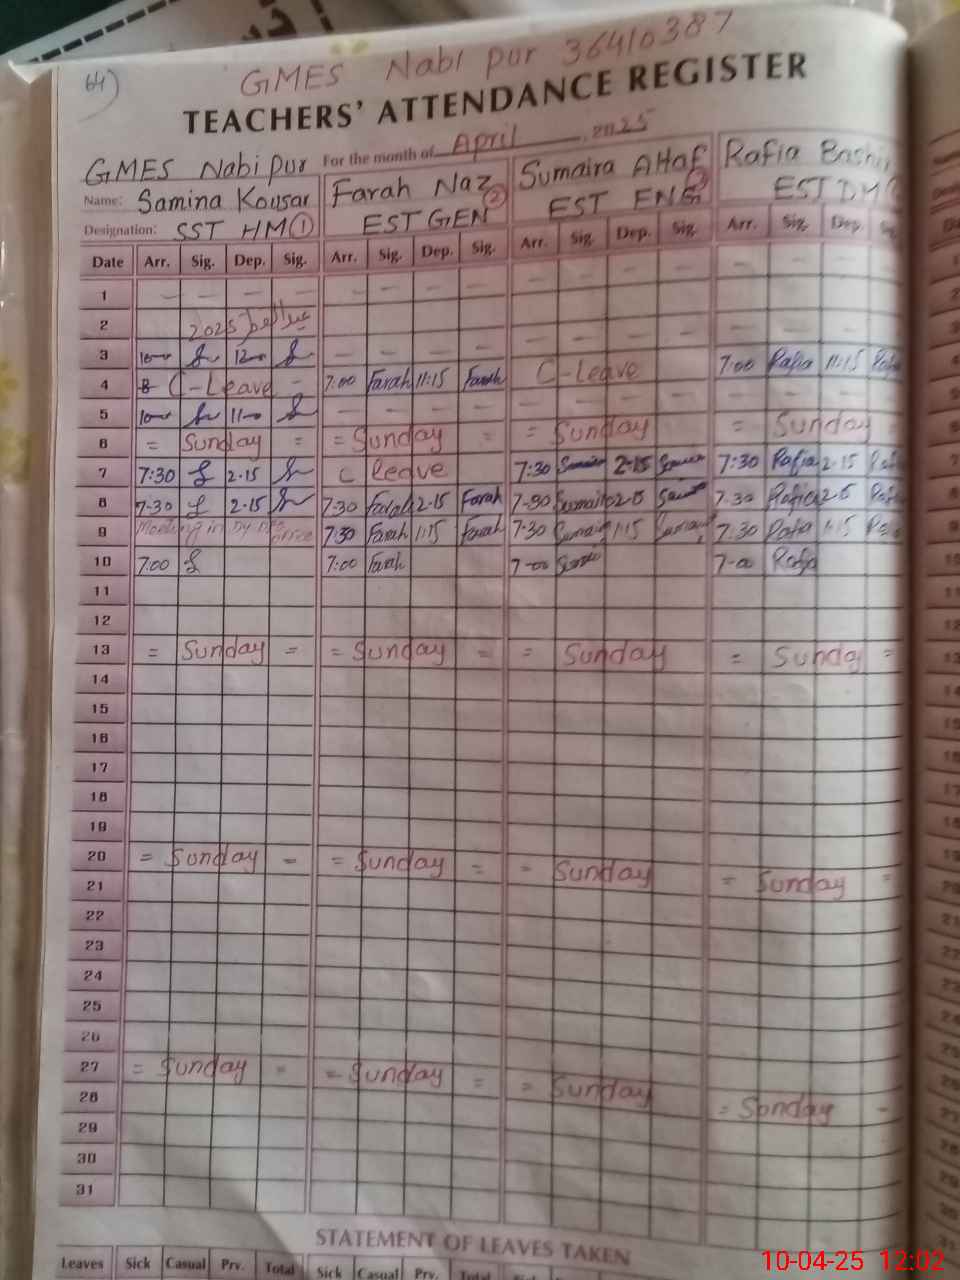 64)
GMES Nabi pur 36410387
TEACHERS' ATTENDANCE REGISTER
For the month of April 2025
GMES Nabi pur
Name: Samina Kousar Farah Naz Sumaira Altaf Rafia Bashir
Designation: SST HM ① EST GEN ② EST ENG EST DM
Date Arr. Sig. Dep. Sig. Arr. Sig. Dep. Sig. Arr. Sig. Dep. Sig. Arr. Sig. Dep. Sig.
1 — — — — — — — — — — — — — — —
2 عيد الفطر 2025 — — — — — — — — — — —
3 — — — — — — — —
4 C-Leave - 7:00 Farah 11:15 Farah C-Leave 7:00 Rafia 11:15
5 — — — — — — — — — — —
6 = Sunday = = Sunday = = Sunday = Sunday
7 7:30 2-15 C leave 7:30 2-15 7:30 Rafia 2-15
8 7-30 2-15 7-30 Farah 2-15 Farah 7-30 Sumaira 2-15 7-30 Rafia
9 Meeting in office 7:30 Farah 1:15 Farah 7-30 Sumaira 1:15 Sumaira 7-30 Rafia 1:15
10 7:00 7:00 Farah 7-00 7-00 Rafia
11
12
13 = Sunday = = Sunday = = Sunday = Sunday =
14
15
16
17
18
19
20 = Sunday = = Sunday = = Sunday = Sunday =
21
22
23
24
25
26
27 = Sunday = = Sunday = = Sunday = Sonday -
28
29
30
31
STATEMENT OF LEAVES TAKEN
Leaves Sick Casual Prv. Total Sick Casual Prv. Total
10-04-25 12:02